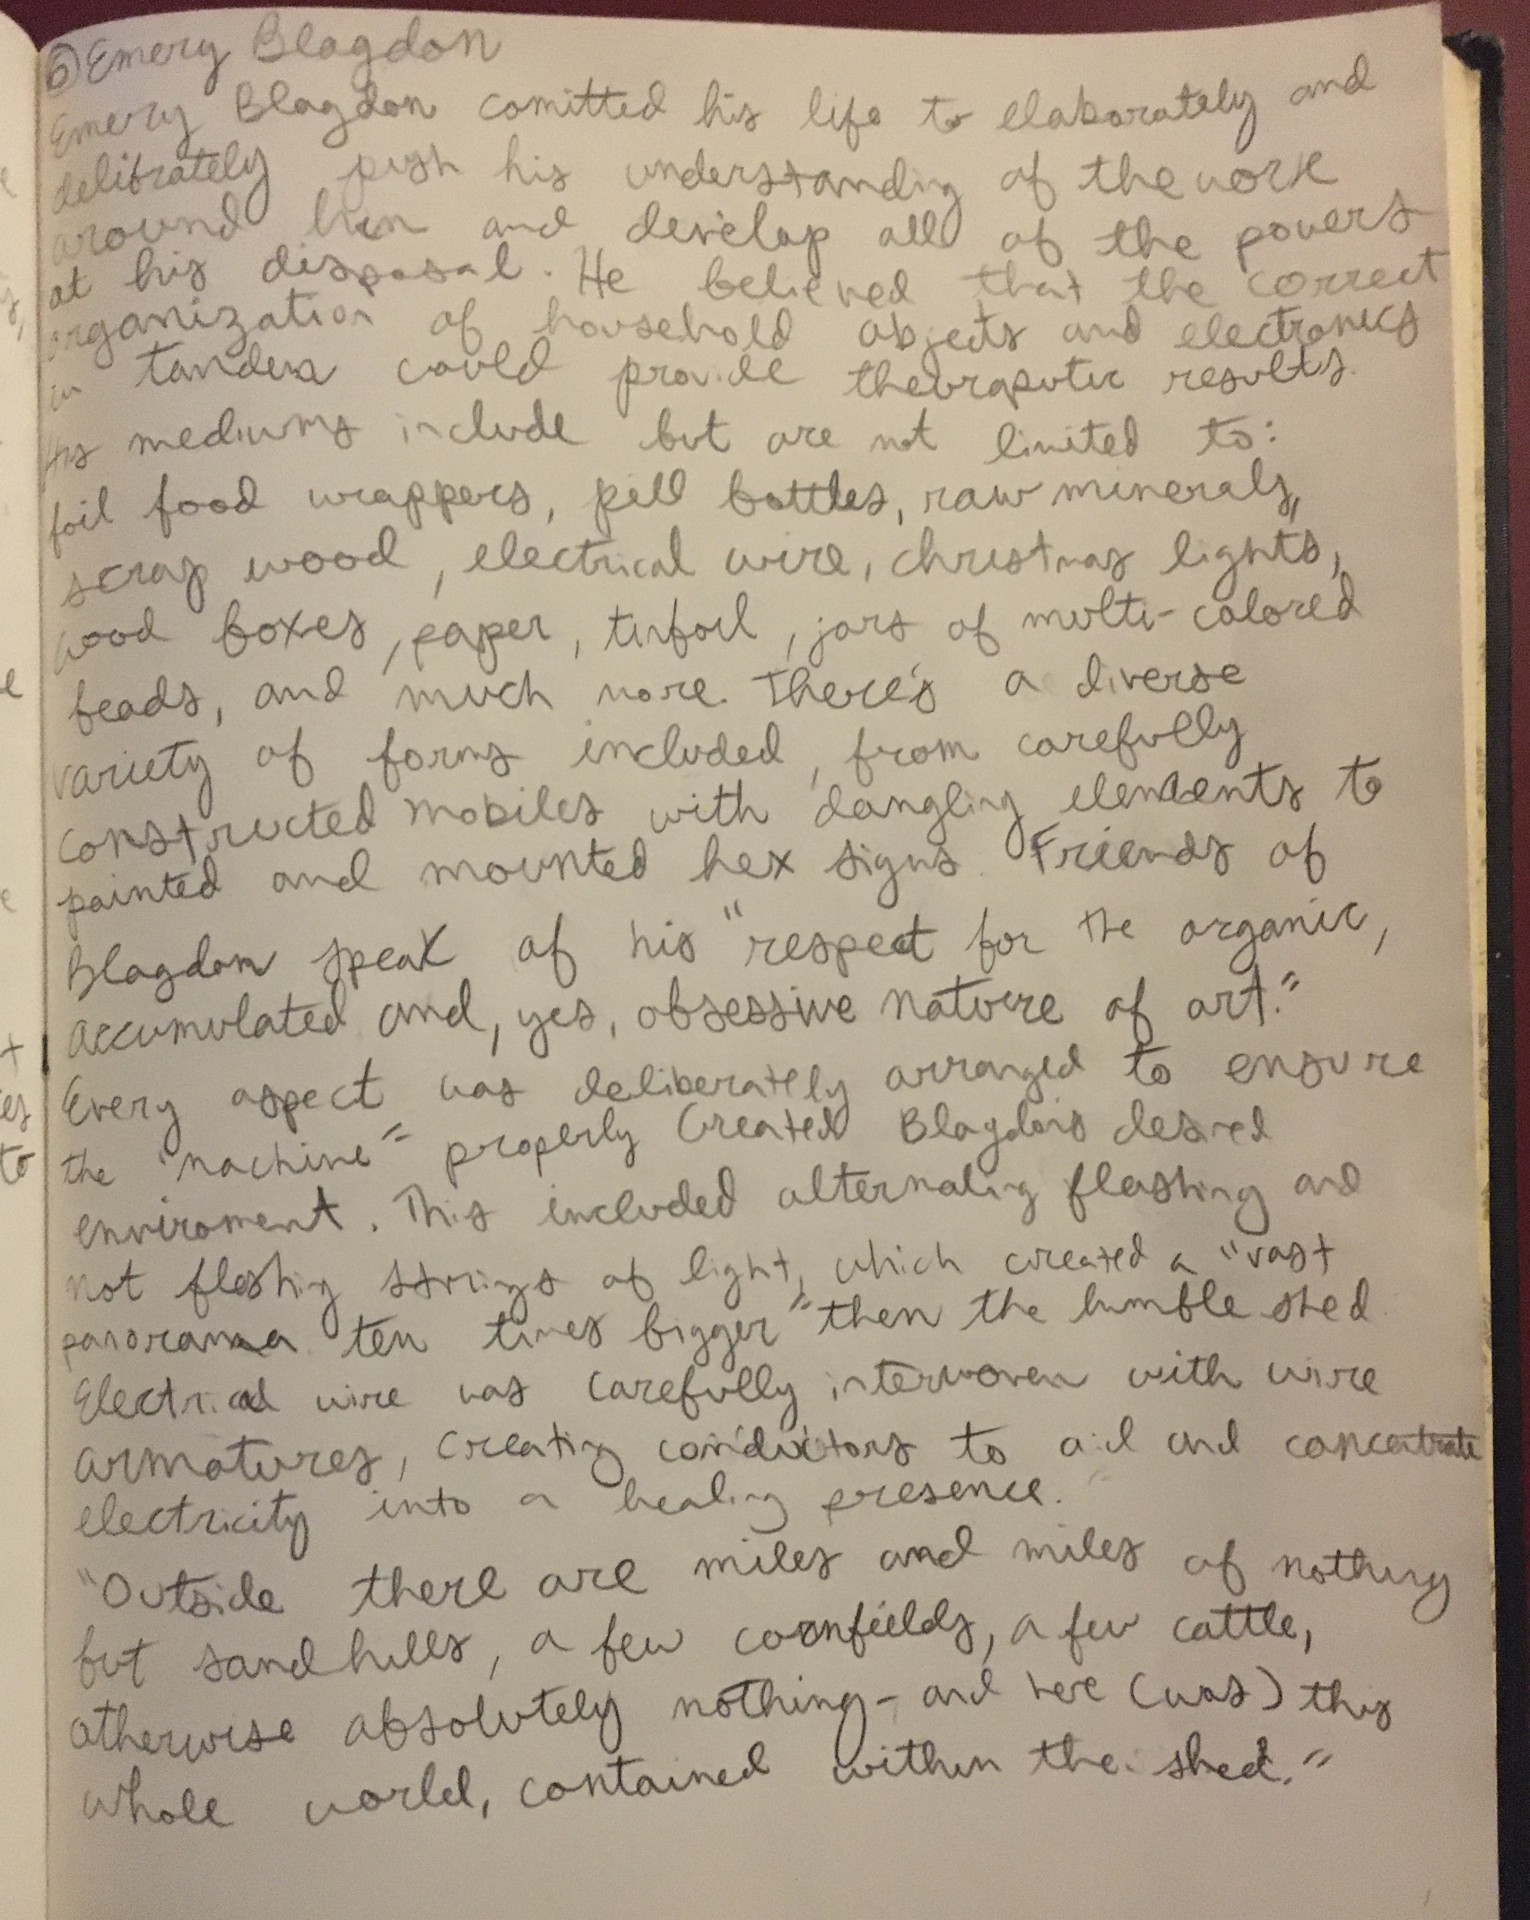 6 Emery Blagdon
Emery Blagdon comitted his life to elaborately and
delibrately push his understanding of the work
around him and develop all of the powers
at his disposal. He believed that the correct
organization of household objects and electronics
in tandem could provide theuraputic results.
His mediums include but are not limited to:
foil food wrappers, pill bottles, raw minerals,
scrap wood, electrical wire, christmas lights,
wood boxes, paper, tinfoil, jars of multi-colored
beads, and much more. There's a diverse
variety of forms included, from carefully
constructed mobiles with dangling elements to
painted and mounted hex signs. Friends of
Blagdon speak of his "respect for the organic,
accumulated and, yes, obsessive nature of art."
Every aspect was deliberately arranged to ensure
the "machine" properly created Blagdon's desired
enviroment. This included alternating flashing and
not flashing strings of light, which created a "vast
panorama ten times bigger" then the humble shed.
Electrical wire was carefully interwoven with wire
armatures, creating conductors to aid and concentrate
electricity into a healing presence.
"Outside there are miles and miles of nothing
but sandhills, a few cornfields, a few cattle,
otherwise absolutely nothing - and here (was) this
whole world, contained within the shed."